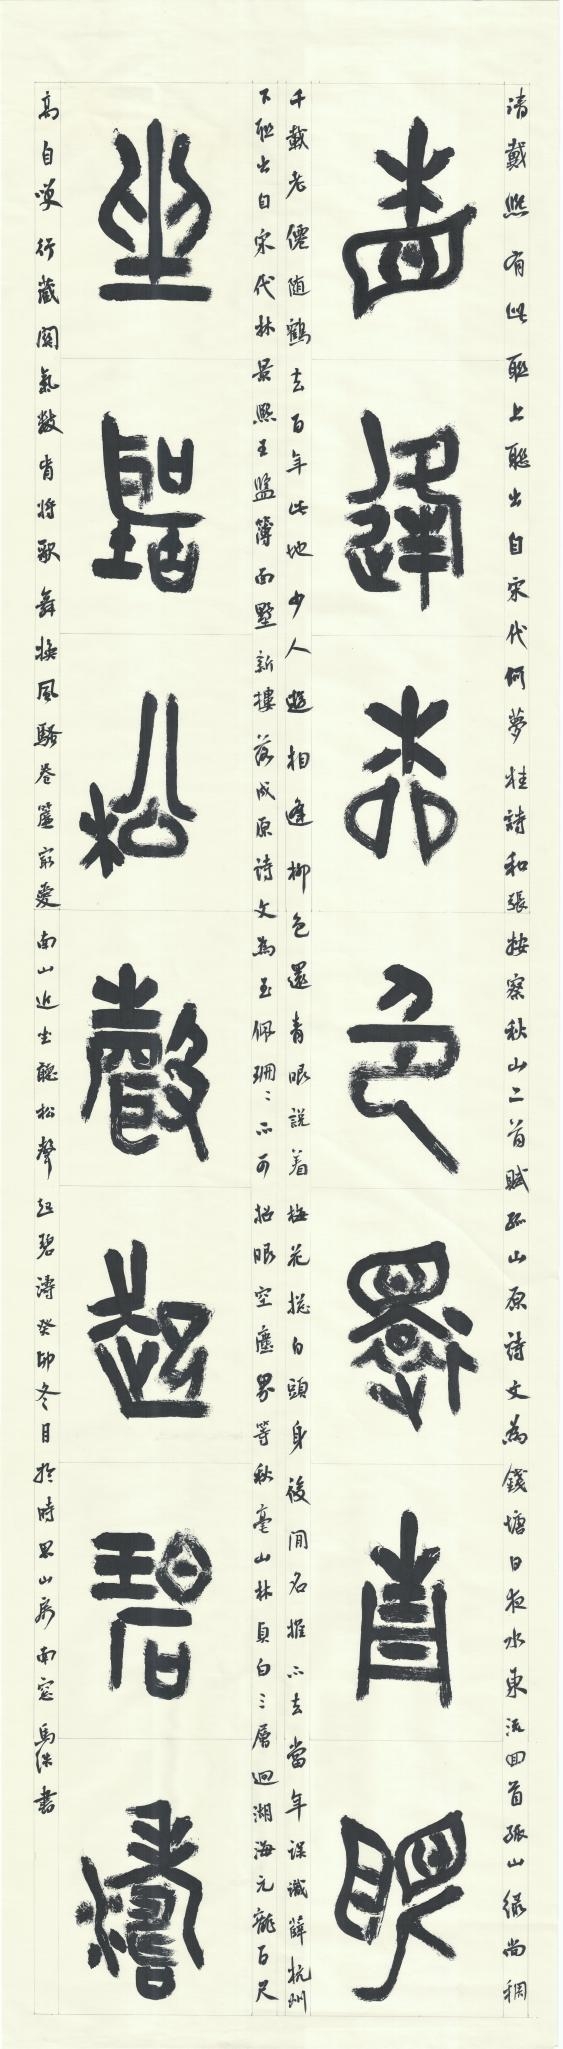 清戴熙有此聯上聯出自宋代何夢桂詩和張按察秋山二首賦孤山原詩文為錢塘日夜水東流回首孤山綠尚稠
相逢柳色還青眼
千載老僊隨鶴去百年此地少人遊相逢柳色還青眼說着梅花總白頭身後閒名推不去當年誤識薛杭州
下聯出自宋代林景熙王監簿面墅新樓落成原詩文為玉佩珊〻不可招眼空塵界等秋毫山林貞白三層迥湖海元龍百尺
坐聽松聲起碧濤
高自嘆行藏關氣數肯將歌舞換風騷卷簾最愛南山近坐聽松聲起碧濤癸卯冬日於時思山房南窗馬書